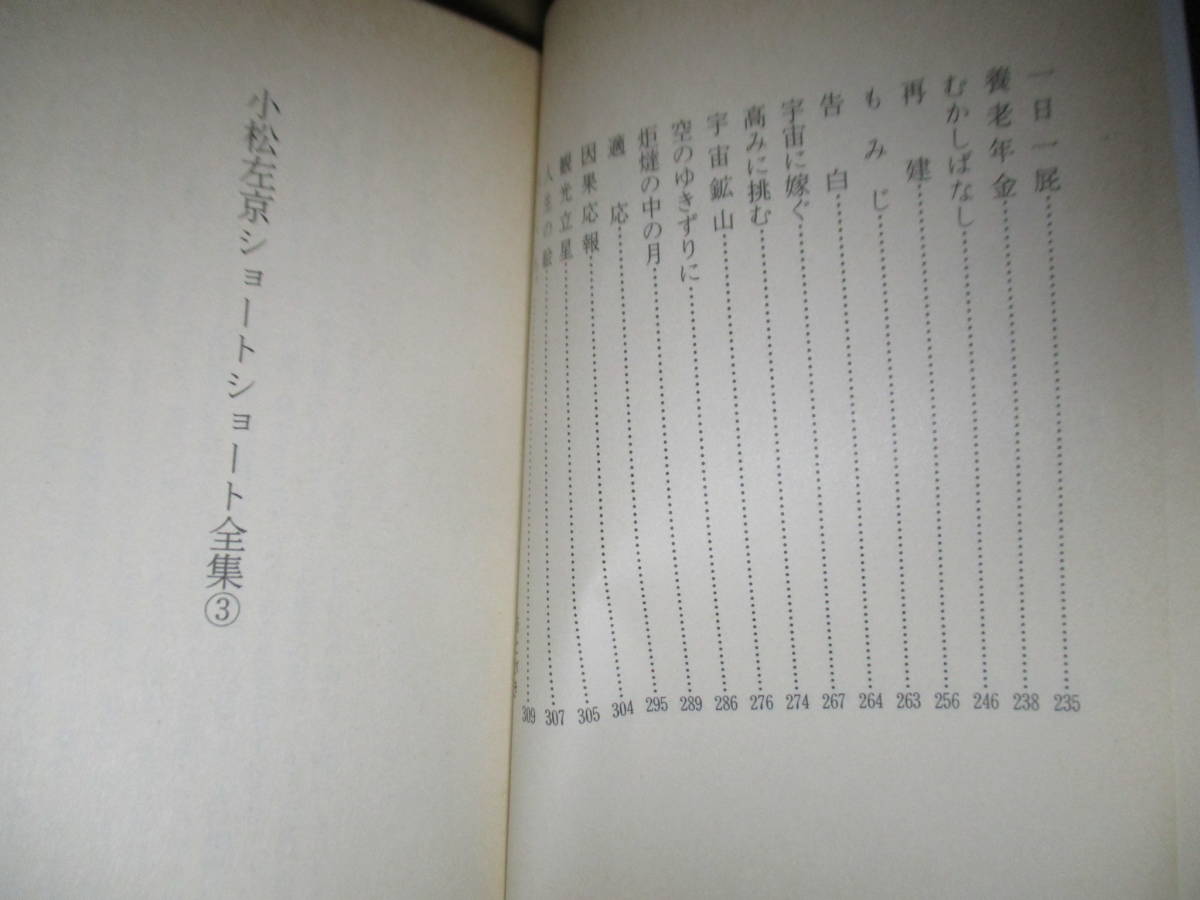 一日一屁……235
養老年金……238
むかしばなし……246
再建……256
もみじ……263
告白……264
宇宙に嫁ぐ……267
高みに挑む……274
宇宙鉱山……276
空のゆきずりに……286
炬燵の中の月……289
適応……295
因果応報……304
観光立星……305
……307
……309
小松左京ショートショート全集③